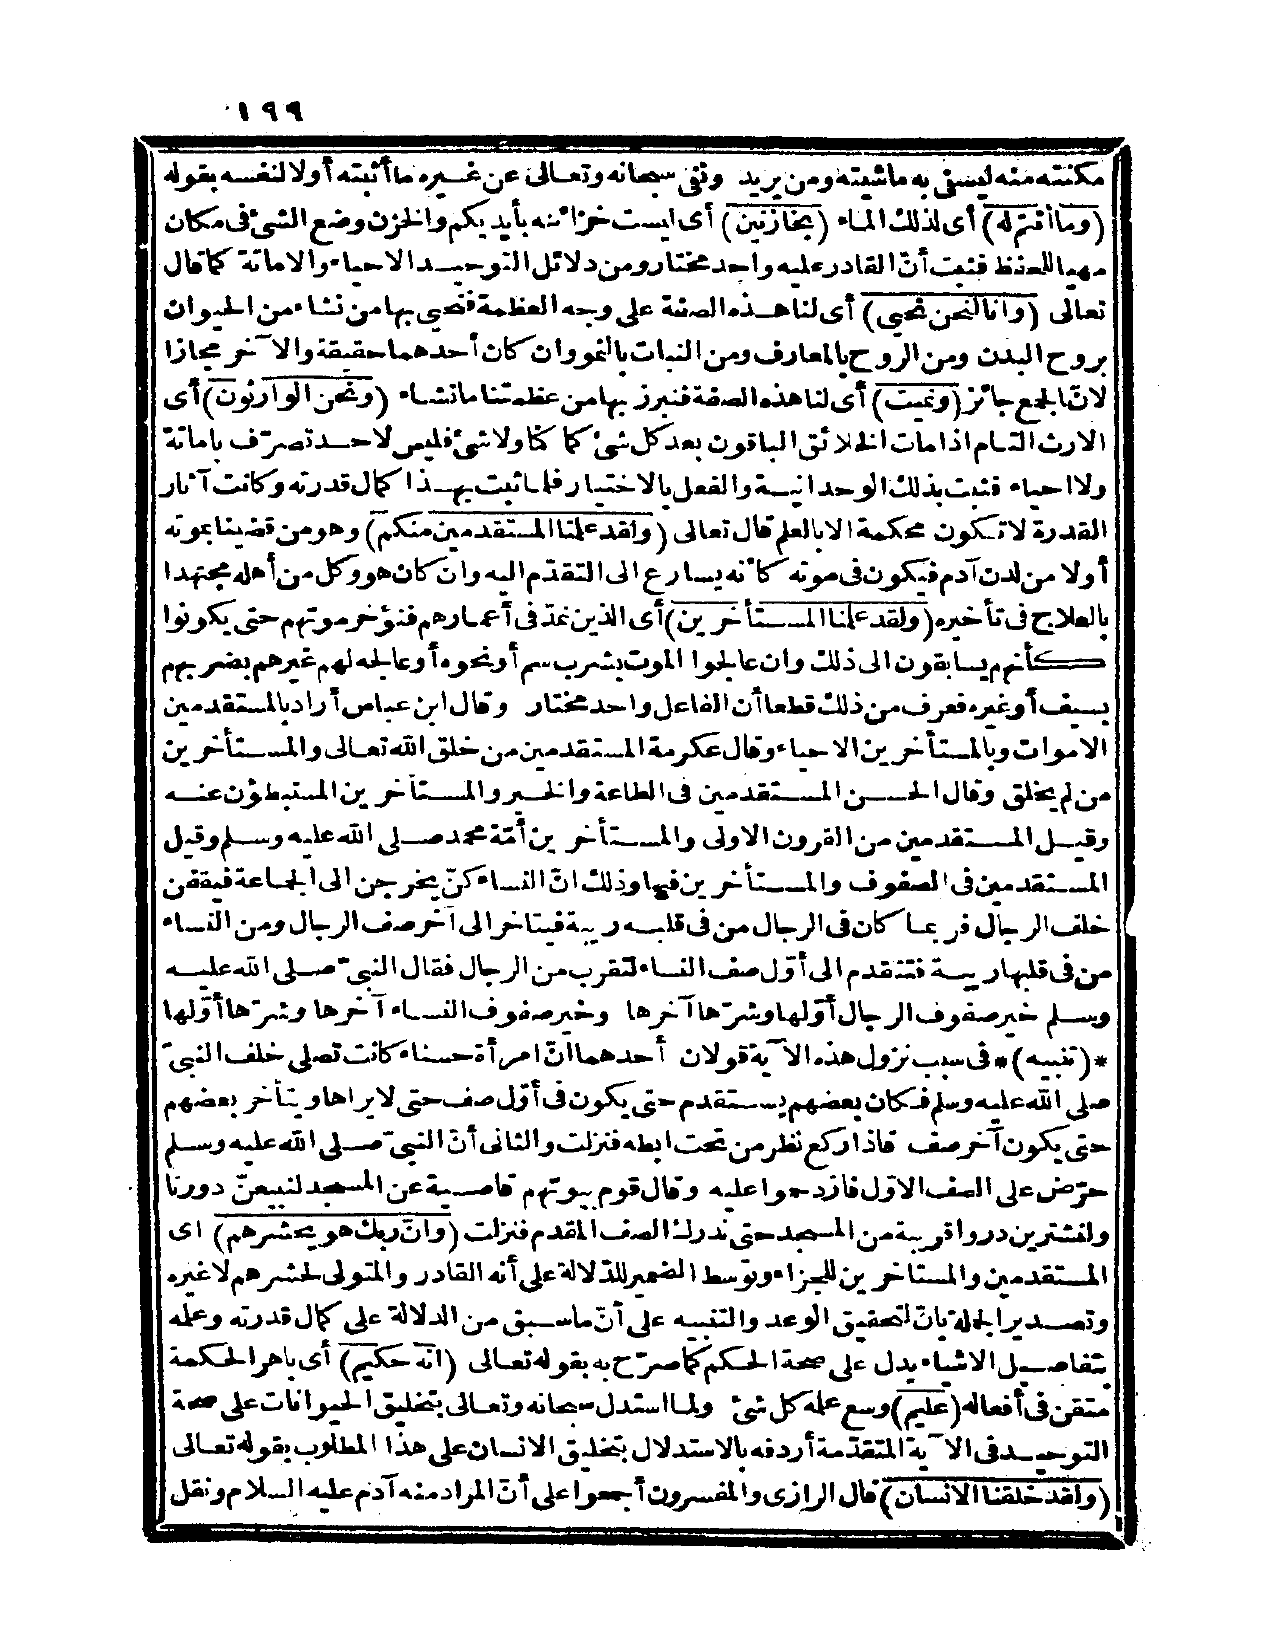 ١٩٩
مكنته منه ليسقى به ماشيته ومن يريد ونفى سبحانه وتعالى عن غيره ما أثبته أولا لنفسه بقوله
(وما أنتم له) أى لذلك الماء (بخازنين) أى ليست خزائنه بأيديكم والخزن وضع الشئ فى مكان
مهيا للحفظ فثبت أنّ القادر عليه واحد مختار ومن دلائل التوحيد الاحياء والاماتة كما قال
تعالى (وانا لنحن نحيى) أى لنا هذه الصفة على وجه العظمة فنحيى بها من نشاء من الحيوان
بروح البدن ومن الروح بالمعارف ومن النبات بالنمو وان كان أحدهما حقيقة والآخر مجازا
لانّ الجمع جائز (ونميت) أى لنا هذه الصفة فنبرز بها من عظمتنا ما نشاء (ونحن الوارثون) أى
الارث التام اذا مات الخلائق الباقون بعد كل شئ كما كنا ولا شئ فليس لاحد تصرّف باماتة
ولا احياء فثبت بذلك الوحدانية والفعل بالاختيار فلما ثبت بهذا كمال قدرته وكانت آثار
القدرة لا تكون محكمة الا بالعلم قال تعالى (ولقد علمنا المستقدمين منكم) وهو من قضينا بموته
أولا من لدن آدم فيكون فى موته كأنه يسارع الى التقدّم اليه وان كان هو وكل من أهله مجتهدا
بالعلاج فى تأخيره (ولقد علمنا المستأخرين) أى الذين نمدّ فى أعمارهم فنؤخر موتهم حتى يكونوا
كأنهم يسابقون الى ذلك وان عالجوا الموت بشرب سم أو نحوه أو عالجه لهم غيرهم بضربهم
بسيف أو غيره فعرف من ذلك قطعا أن الفاعل واحد مختار وقال ابن عباس أراد بالمستقدمين
الاموات وبالمستأخرين الاحياء وقال عكرمة المستقدمين من خلق الله تعالى والمستأخرين
من لم يخلق وقال الحسن المستقدمين فى الطاعة والخير والمستأخرين المستبطؤن عنه
وقيل المستقدمين من القرون الاولى والمستأخرين أمّة محمد صلى الله عليه وسلم وقيل
المستقدمين فى الصفوف والمستأخرين فيها وذلك انّ النساء كنّ يخرجن الى الجماعة فيقفن
خلف الرجال فربما كان فى الرجال من فى قلبه ريبة فيتاخر الى آخر صف الرجال ومن النساء
من فى قلبها ريبة فتتقدم الى أوّل صف النساء لتقرب من الرجال فقال النبىّ صلى الله عليه
وسلم خير صفوف الرجال أوّلها وشرّها آخرها وخير صفوف النساء آخرها وشرّها أوّلها
*(تنبيه)* فى سبب نزول هذه الآية قولان أحدهما انّ امرأة حسناء كانت تصلى خلف النبىّ
صلى الله عليه وسلم فكان بعضهم يستقدم حتى يكون فى أوّل صف حتى لا يراها ويتأخر بعضهم
حتى يكون آخر صف فاذا ركع نظر من تحت ابطه فنزلت والثانى أنّ النبىّ صلى الله عليه وسلم
حرّض على الصف الاوّل فازدحموا عليه وقال قوم بيوتهم قاصية عن المسجد لنبيعنّ دورنا
ولنشترين دروا قريبة من المسجد حتى ندرك الصف المقدم فنزلت (وانّ ربك هو يحشرهم) اى
المستقدمين والمستاخرين للجزاء وتوسط الضمير للدّلالة على أنه القادر والمتولى لحشرهم لا غيره
وتصدير الجملة بانّ لتحقيق الوعد والتنبيه على أنّ ما سبق من الدلالة على كمال قدرته وعلمه
بتفاصيل الاشياء يدل على صحة الحكم كما صرّح به بقوله تعالى (انّه حكيم) أى باهر الحكمة
متقن فى أفعاله (عليم) وسع علمه كل شئ ولما استدل سبحانه وتعالى بتخليق الحيوانات على صحة
التوحيد فى الآية المتقدّمة أردفه بالاستدلال بتخليق الانسان على هذا المطلوب بقوله تعالى
(ولقد خلقنا الانسان) قال الرازى والمفسرون أجمعوا على أنّ المراد منه آدم عليه السلام ونقل